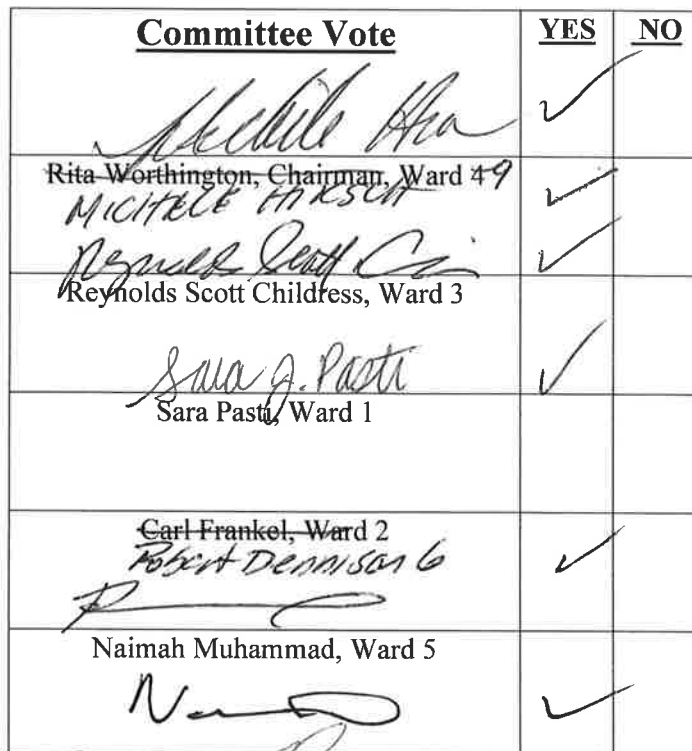 Committee Vote YES NO
Rita Worthington, Chairman, Ward 4 9
MICHELE HIRSCH
Reynolds Scott Childress, Ward 3
Sara J. Pasti
Sara Pasti, Ward 1
Carl Frankel, Ward 2
Robert Dennison 6
Naimah Muhammad, Ward 5